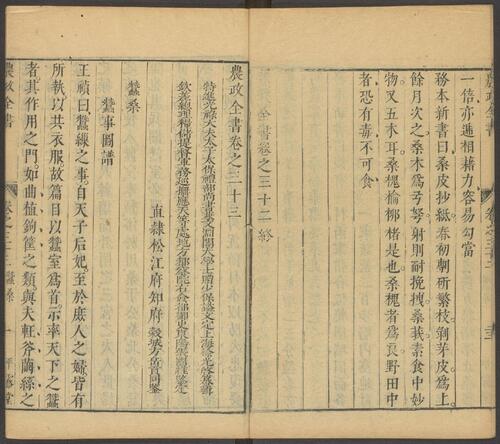 一倍亦遞相藉力容易勾當
務本新書曰桑皮抄紙春初斸斫繁枝剝芽皮為上
餘月次之桑木為弓弩射則耐挽拽桑莪素食中妙
物又五木耳桑槐榆柳楮是也桑槐者為良野田中
者恐有毒不可食
全書卷之三十二終
農政全書卷之三十三
特進光祿大夫太子太保禮部尚書兼文淵閣大學士贈少保諡文定上海徐光啟纂輯
欽差總理糧儲提督軍務巡撫應天等處地方都察院右僉都御史東陽張國維鑒定
直隸松江府知府穀城方岳貢同鑒
蠶桑
蠶事圖譜
王禎曰蠶繅之事自天子后妃至於庶人之婦皆有
所執以共衣服故篇目以蠶室為首示率天下之蠶
者其作用之門如曲植鉤筐之類與夫軖斧繭繅之
農政全書
卷之三十三
蠶桑
一
平露堂